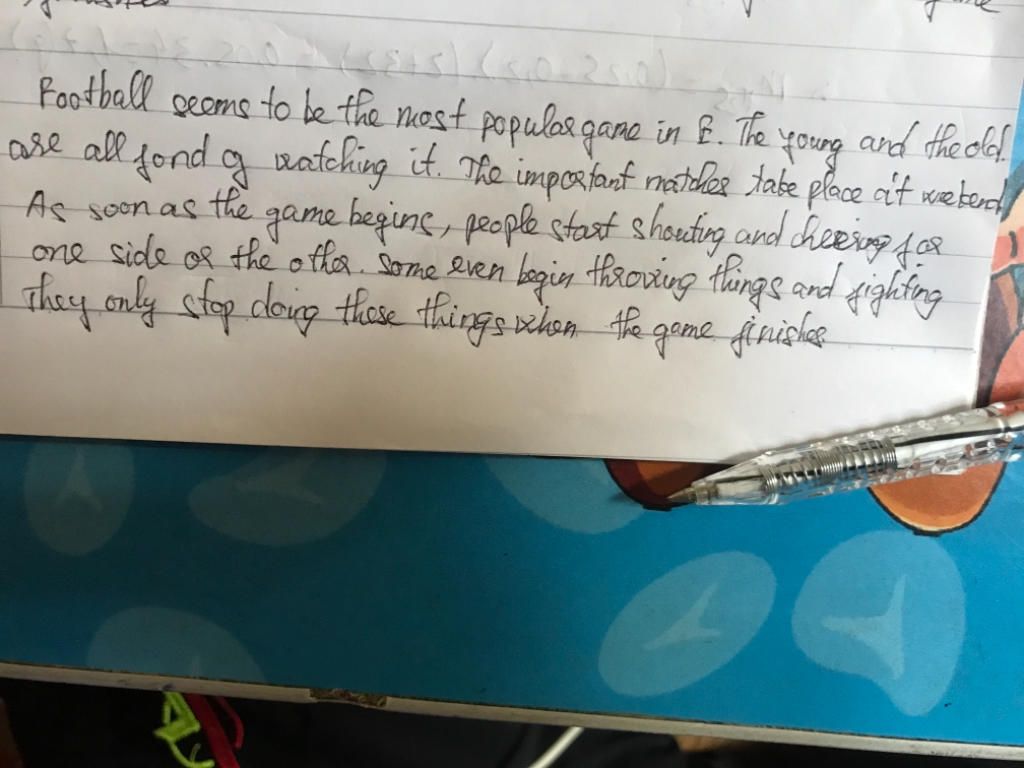 Football seems to be the most popular game in E. The young and the old.
are all fond of watching it. The important matches take place at weekend
As soon as the game begins, people start shouting and cheering for
one side or the other. Some even begin throwing things and fighting
They only stop doing these things when the game finishes